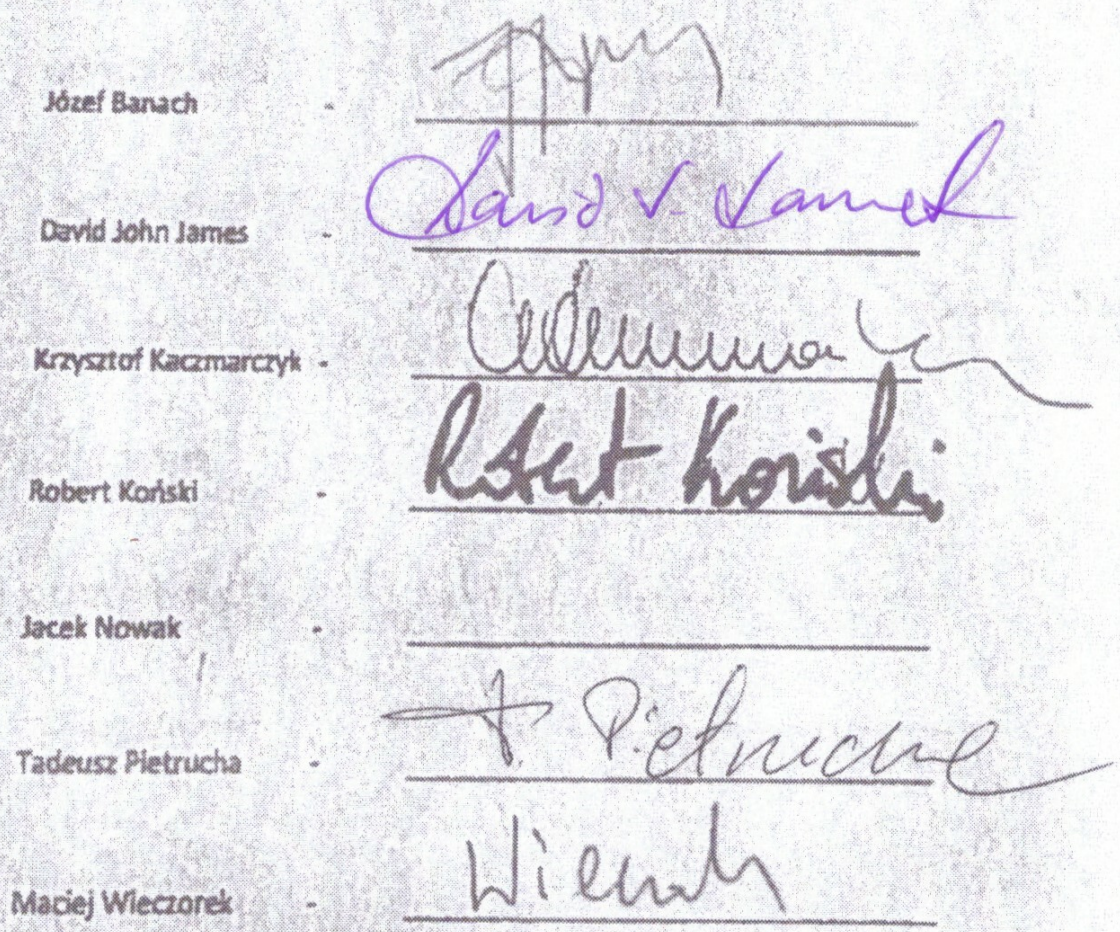 Józef Banach -
David John James - David J. James
Krzysztof Kaczmarczyk -
Robert Koński - Robert Koński
Jacek Nowak -
Tadeusz Pietrucha - T. Pietrucha
Maciej Wieczorek -